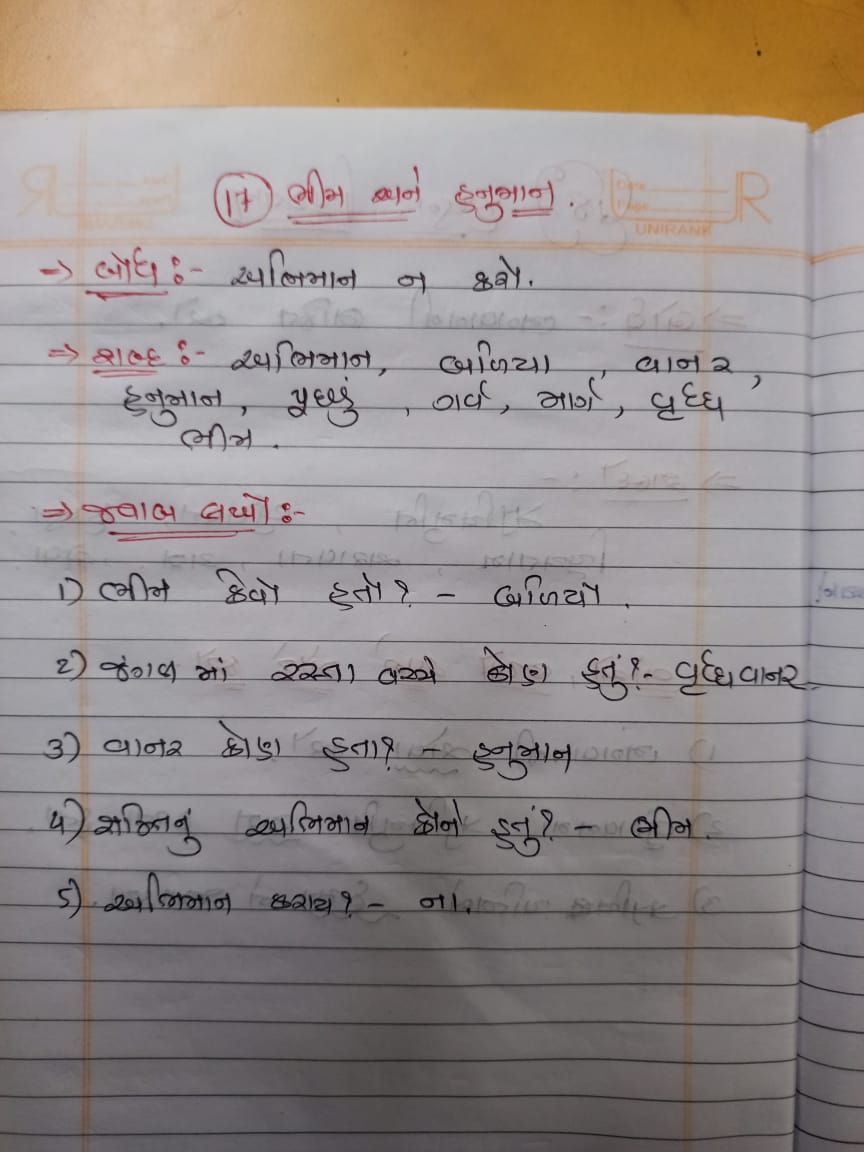 (17) ભીમ અને હનુમાન.
UNIRANK
→ બોધ :- અભિમાન ન કરો.
→ શબ્દ :- અભિમાન, બળિયા, વાનર,
હનુમાન, પૂછડું, ગર્વ, માર્ગ, વૃદ્ધ
ભીમ.
→ જવાબ લખો :-
૧) ભીમ કેવો હતો? - બળિયો.
૨) જંગલ માં રસ્તા વચ્ચે કોણ હતું? - વૃદ્ધ વાનર
૩) વાનર કોણ હતા? - હનુમાન
૪) શક્તિનું અભિમાન કોને હતું? - ભીમ.
૫) અભિમાન કરાય? - ના.